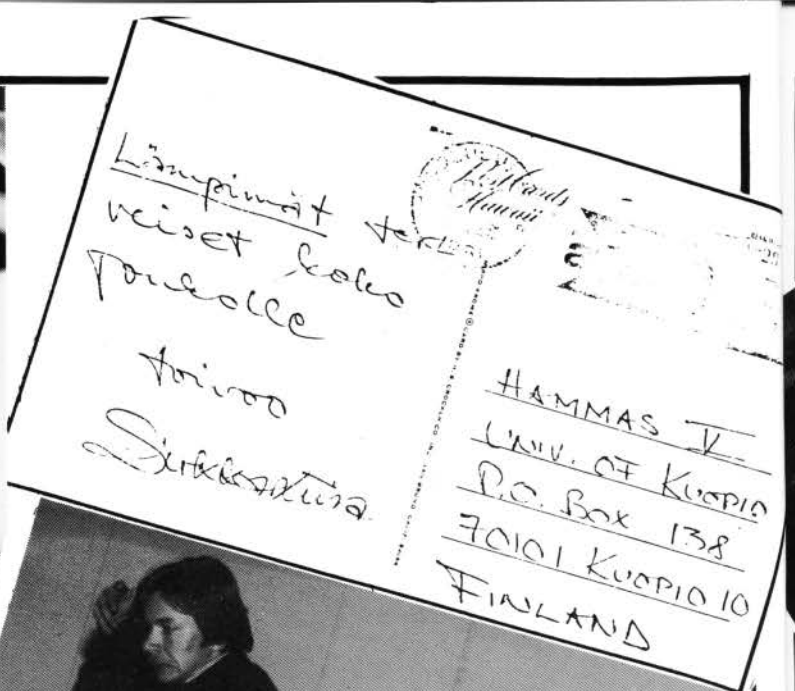 Lämpimät ter-
veiset koko
porukalle
toivoo
Hawaii
HAMMAS V
UNIV. OF KUOPIO
P.O. BOX 138
70101 KUOPIO 10
FINLAND